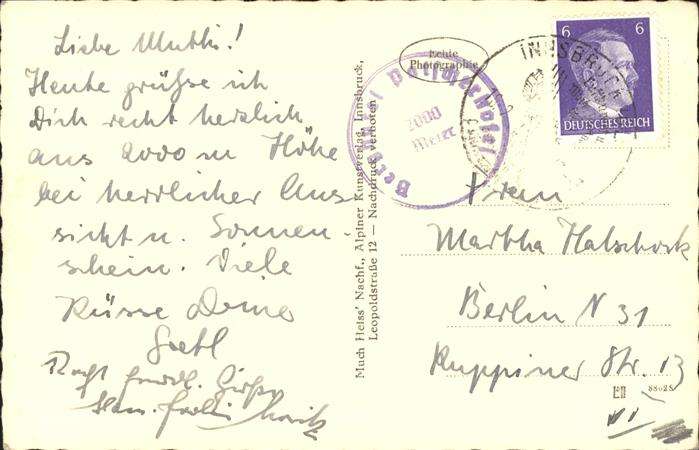 Liebe Mutti!
Heute grüße ich
Dich recht herzlich
aus 2000 m Höhe
bei herrlicher Aus-
sicht u. Sonnen-
schein. Viele
Küsse Deine
Recht freundl. Grüße
Echte
Photographie
Berghotel Patscherkofel
2000
Meter
INNSBRUCK
6 6
DEUTSCHES REICH
Much Heiss' Nachf., Alpiner Kunstverlag, Innsbruck,
Leopoldstraße 12 — Nachdruck verboten
Frau
Martha
Berlin N 31
Ruppiner Str. 13